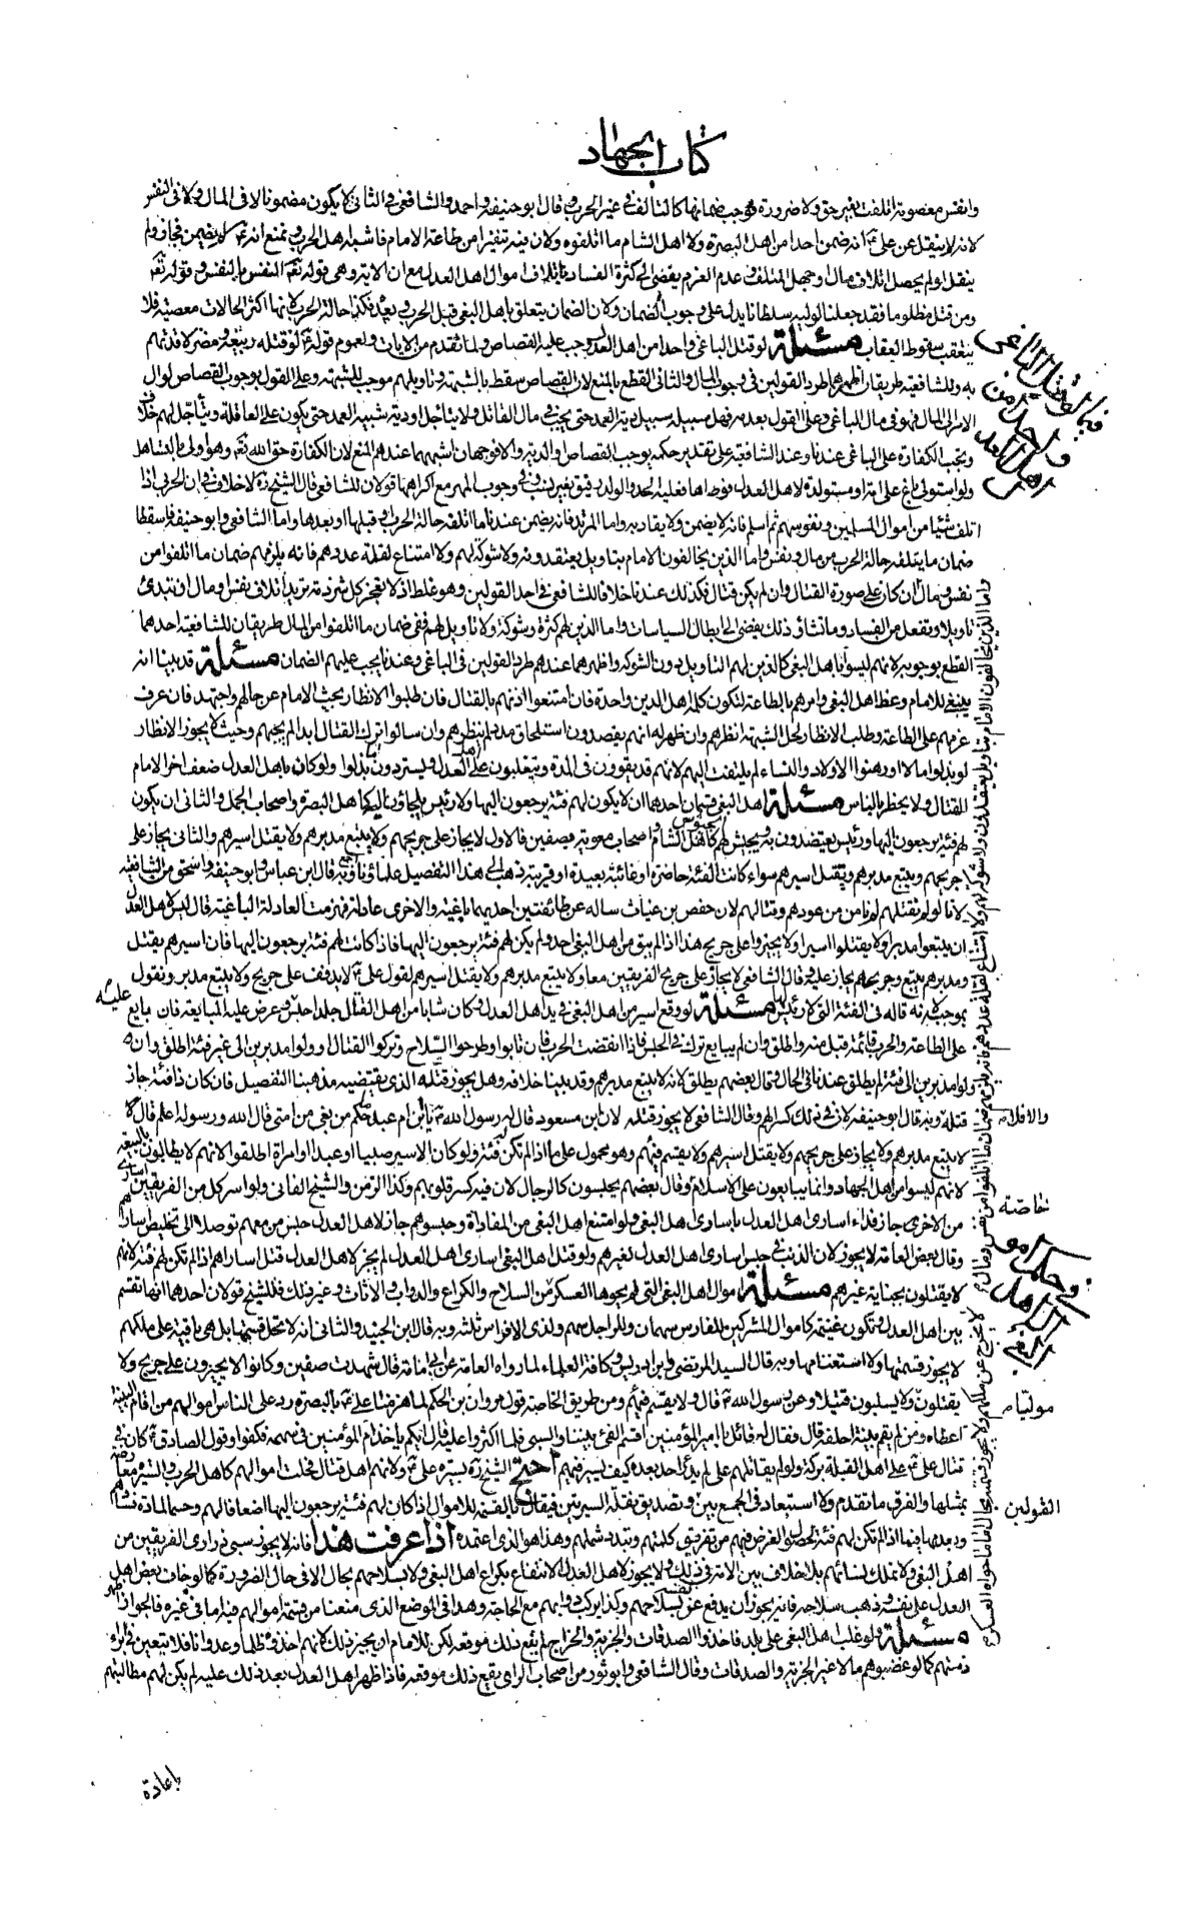 كتاب الجهاد
وانفس معصومة اتلفت بغير حق ولا ضرورة فوجب ضمانها كالتالف في غير الحرب وقال ابو حنيفة واحمد والشافعي في الثاني لا يكون مضمونا لا في المال ولا في النفس
لانه لم ينقل عن علي انه ضمن احدا من اهل البصرة ولا اهل الشام ما اتلفوه ولان فيه تنفيرا من طاعة الامام فاشبه اهل الحرب ونمنع انه لا يضمن فجاز ولم
ينقل او لم يحصل اتلاف مال او جهل المتلف وعدم الغرم يفضي الى كثرة الفساد باتلاف اموال اهل العدل مع ان الاية وهي قوله تعالى النفس بالنفس وقوله تعالى
ومن قتل مظلوما فقد جعلنا لوليه سلطانا يدل على وجوب الضمان ولان الضمان يتعلق باهل البغي قبل الحرب وبعده فكذا حالة الحرب لانها اكثر الحالات معصية فلا
يتعقب سقوط العقاب مسئلة لو قتل الباغي واحدا من اهل العدل وجب عليه القصاص ولما تقدم من الايات ولعموم قوله لو قتله ربيعة ومضر لاقدتهم
به وللشافعية طريقان اظهرهما طرد القولين في وجوب المال والثاني القطع بالمنع لان القصاص سقط بالشبهة وتاويلهم موجب للشبهة وعلى القول بوجوب القصاص لو ال
الامر الى المال فهو في مال الباغي وعلى القول بعدمه فهل سبيله سبيل دية العمد حتى يجب في مال القاتل ولا يتاجل او دية شبيه العمد حتى يكون على العاقلة ويتاجل لهم خلاف
وتجب الكفارة على الباغي عندنا وعند الشافعية على تقدير حكمه بوجب القصاص والدية والا فوجهان اشبههما عندهم المنع لان الكفارة حق الله تعالى وهو اولى بالتساهل
ولو استولى باغ على امة او مستولدة لاهل العدل فوطئها فعليه الحد والولد رقيق غير نسيب وفي وجوب المهر مع اكراهها قولان للشافعي قال الشيخ ره لا خلاف في ان الحربي اذا
اتلف شيئا من اموال المسلمين ونفوسهم ثم اسلم فانه لا يضمن ولا يقاد به واما المرتد فانه يضمن عندنا ما اتلفه حالة الحرب او قبلها او بعدها واما الشافعي وابو حنيفة فاسقطا
ضمان ما يتلفه حالة الحرب من مال ونفس واما الذين يخالفون الامام بتاويل يعتقدونه ولا شوكة لهم ولا امتناع لقلة عددهم فانه يلزمهم ضمان ما اتلفوا من
نفس ومال ان كان على صورة القتال وان لم يكن قتال فكذلك عندنا خلافا للشافعي في احد القولين وهو غلط اذ لا تعجز كل شرذمة تريد اتلاف نفس ومال ان تبدئ
تاويلا وتفعل من الفساد وما تشاؤ ذلك يفضي الى ابطال السياسات واما الذين لهم كثرة وشوكة ولا تاويل لهم ففي ضمان ما اتلفوا من المال طريقان للشافعية احدهما
القطع بوجوبه لانهم ليسوا باهل البغي كالذين لهم التاويل بدون الشوكة واظهرهما عندهم طرد القولين في الباغي وعندنا يجب عليهم الضمان مسئلة قد بينا انه
ينبغي للامام وعظ اهل البغي وامرهم بالطاعة لتكون كلمة اهل الدين واحدة فان امتنعوا اذنهم بالقتال فان طلبوا الانظار بحث الامام عن حالهم واجتهد فان عرف
عزمهم على الطاعة وطلب الانظار لحل الشبهة انظرهم وان ظهر له انهم يقصدون استلحاق مدد لم ينظرهم وان سالوا ترك القتال ابدا لم يجبهم وحيث لا يجوز الانظار
لو بذلوا مالا او رهنوا الاولاد والنساء لم يلتفت اليهم لانهم قد يقوون في المدة ويتغلبون على اهل العدل ويستردون ما بذلوا ولو كان باهل العدل ضعف اخر الامام
القتال ولا يخطر بالناس مسئلة اهل البغي قسمان احدهما ان لا يكون لهم فئة يرجعون اليها ولا رئيس يلجاون اليه كاهل البصرة واصحاب الجمل والثاني ان يكون
لهم فئة يرجعون اليها ورئيس يعتضدون به ويجيش لهم الجيوش كاهل الشام واصحاب معوية بصفين فالاول لا يجاز على جريحهم ولا يتبع مدبرهم ولا يقتل اسيرهم والثاني يجاز على
جريحهم ويتبع مدبرهم ويقتل اسيرهم سواء كانت الفئة حاضرة او غائبة بعيدة او قريبة ذهب الى هذا التفصيل علماؤنا وبه قال ابن عباس وابو حنيفة واسحق من الشافعية
لانا لو لم نقتلهم لم نامن من عودهم وقتالهم لان حفص بن غياث ساله عن طائفتين احديهما باغية والاخرى عادلة فهزمت العادلة الباغية قال ليس لاهل العدل
ان يتبعوا مدبرا ولا يقتلوا اسيرا ولا يجيزوا على جريح هذا اذا لم يبق من اهل البغي احد ولم يكن لهم فئة يرجعون اليها فاذا كانت لهم فئة يرجعون اليها فان اسيرهم يقتل
ومدبرهم يتبع وجريحهم يجاز عليه وقال الشافعي لا يجاز على جريح الفريقين معا ولا يتبع مدبرهم ولا يقتل اسيرهم لقول علي لا يدفف على جريح ولا يتبع مدبر ونقول
بموجبه لانه قاله في الفئة التي لا رئيس لها مسئلة لو وقع اسير من اهل البغي في يد اهل العدل وكان شابا من اهل القتال جلدا حبس وعرض عليه المبايعة فان بايع
على الطاعة والحرب قائمة قبل منه واطلق وان لم يبايع ترك في الحبس فاذا انقضت الحرب فان تابوا وطرحوا السلاح وتركوا القتال او ولوا مدبرين الى غير فئة اطلق وان
ولوا مدبرين الى فئة لم يطلق عندنا في الحال وقال بعضهم يطلق لانه لا يتبع مدبرهم وقد بينا خلافه وهل يجوز قتله الذي يقتضيه مذهبنا التفصيل فان كان ذا فئة جاز
قتله وبه قال ابو حنيفة لان في ذلك كسرا لهم وقال الشافعي لا يجوز قتله لان ابن مسعود قال له رسول الله يا ابن ام عبد ما حكم من بغى من امتي قال الله ورسوله اعلم قال
لا يتبع مدبرهم ولا يجاز على جريحهم ولا يقتل اسيرهم ولا يقسم فيئهم وهو محمول على ما اذا لم تكن فئة ولو كان الاسير صبيا او عبدا او امراة اطلقوا لانهم لا يطالبون بالبيعة
لانهم ليسوا من اهل الجهاد وانما يبايعون على الاسلام وقال بعضهم يحبسون كالرجال لان فيه كسر قلوبهم وكذا الزمن والشيخ الفاني ولو اسر كل من الفريقين اسارى
من الاخرى جاز فداء اسارى اهل العدل باسارى اهل البغي ولو امتنع اهل البغي من المفاداة وحبسوهم جاز لاهل العدل حبس من معهم توصلا الى تخليص اساراهم
وقال بعض العامة لا يجوز لان الذنب في حبس اسارى اهل العدل لغيرهم ولو قتل اهل البغي اسارى اهل العدل لم يجز لاهل العدل قتل اساراهم اذا لم تكن لهم فئة لانهم
لا يقتلون بجناية غيرهم مسئلة اموال اهل البغي التي لم يحوها العسكر من السلاح والكراع والدواب والاثاث وغير ذلك فللشيخ قولان احدهما انها تقسم
بين اهل العدل وتكون غنيمة كاموال المشركين للفارس سهمان وللراجل سهم ولذي الافراس ثلثة وبه قال ابن الجنيد والثاني انه لا تحل قسمتها بل هي باقية على ملكهم
لا يجوز قسمتها ولا استغنامها وبه قال السيد المرتضى وابن ادريس وكافة العلماء لما رواه العامة عن ابي امامة قال شهدت صفين وكانوا لا يجيزون على جريح ولا
يقتلون ولا يسلبون قتيلا وعن رسول الله قال ولا يقسم فيئهم ومن طريق الخاصة قول مروان بن الحكم لما هزمنا علي بالبصرة رد على الناس اموالهم من اقام البينة
اعطاه ومن لم يقم بينة احلفه قال فقال له قائل يا امير المؤمنين اقسم الفئ بيننا والسبي فلما اكثروا عليه قال ايكم ياخذ ام المؤمنين في سهمه فكفوا وقول الصادق كان في
قتال علي على اهل القبلة بركة ولو لم يقاتلهم علي لم يدر احد بعده كيف يسير فيهم احتج الشيخ ره بسيرة علي ولانهم اهل قتال فحلت اموالهم كاهل الحرب والسيرة معارضة
بمثلها والفرق ما تقدم ولا استبعاد في الجمع بين وتصديق نقلة السيرتين فيقال بالقسمة للاموال اذا كان لهم فئة يرجعون اليها اضعافا لهم وحسما لمادة فسادهم
وبعدمها فيما اذا لم تكن لهم فئة لحصول الغرض فيهم من تفرق كلمتهم وتبدد شملهم وهذا هو الذي اعتمده اذا عرفت هذا فانه لا يجوز سبي ذراري الفريقين من
اهل البغي ولا تملك نسائهم بلا خلاف بين الامة في ذلك ولا يجوز لاهل العدل الانتفاع بكراع اهل البغي ولا بسلاحهم بحال الا في حال الضرورة كما لو خاف بعض اهل
العدل على نفسه وذهب سلاحه فانه يجوز ان يدفع عن نفسه بسلاحهم وكذا يركب دوابهم مع الحاجة وهذا في الموضع الذي منعنا من قسمة اموالهم فيه اما في غيره فالجواز اظهر
مسئلة ولو غلب اهل البغي على بلد فاخذوا الصدقات والجزية والخراج لم يقع ذلك موقعه لكن للامام ان يجيز ذلك لانهم اخذوه ظلما وعدوانا فلا يتعين في ابراء
ذمتهم كما لو غصبوهم مالا غير الجزية والصدقات وقال الشافعي وابو ثور من اصحاب الراي يقع ذلك موقعه فاذا ظهر اهل العدل بعد ذلك عليه لم يكن لهم مطالبتهم
فيما لو قتل الباغي
واحدا من
اهل العدل
واما الذين يخالفون الامام بتاويل يعتقدونه ولا شوكة لهم ولا امتناع لقلة عددهم فانه يلزمهم ضمان ما اتلفوا من نفس ومال
عليه
والا فلا
خاصة
في حكم اموال
اهل
البغي
لا يخرج عن ملكهم ولا يجوز قسمته بحال اما ما حواه العسكر
القولين
باعادة